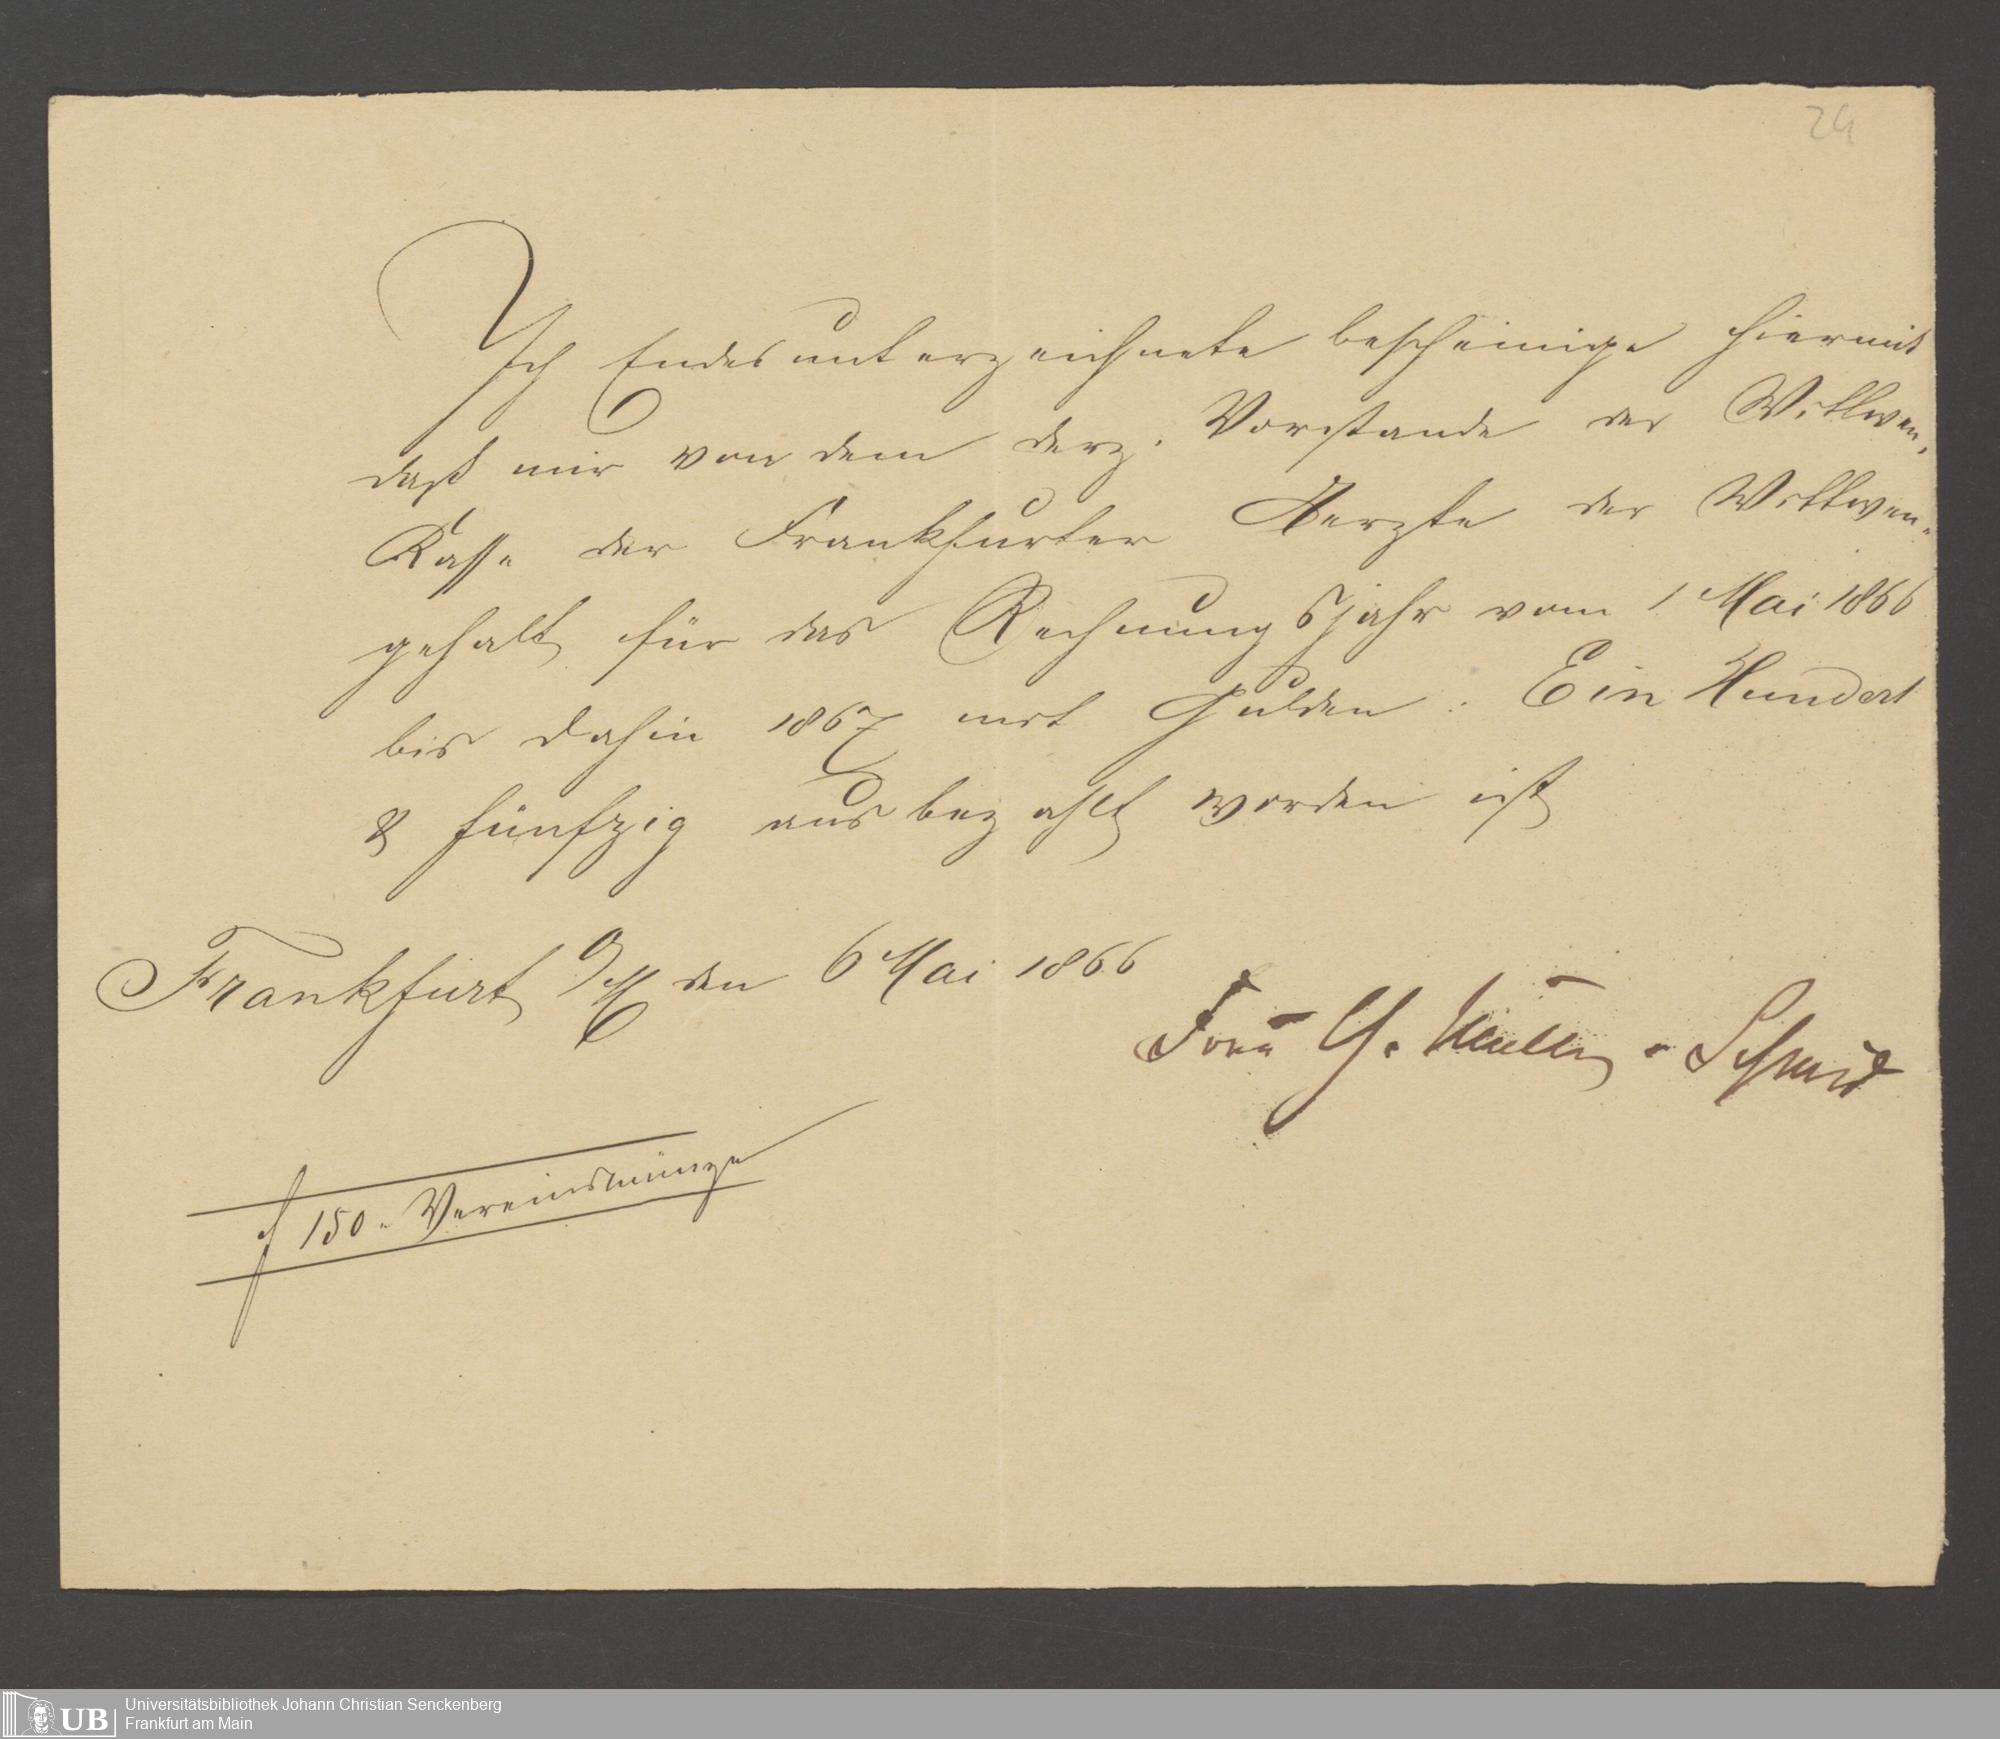 24
Ich Endesunterzeichnete bescheinige hiermit
daß mir von dem derz. Vorstande der Wittwen-
Kasse der Frankfurter Aerzte der Wittwen-
gehalt für das Rechnungsjahr vom 1 Mai 1866
bis dahin 1867 mit Gulden: Ein Hundert
& fünfzig ausbezahlt worden ist
Frankfurt a/M den 6 Mai 1866
Frau G. Müller - Schmid
f 150 - Vereinsmünze
UB Universitätsbibliothek Johann Christian Senckenberg
Frankfurt am Main